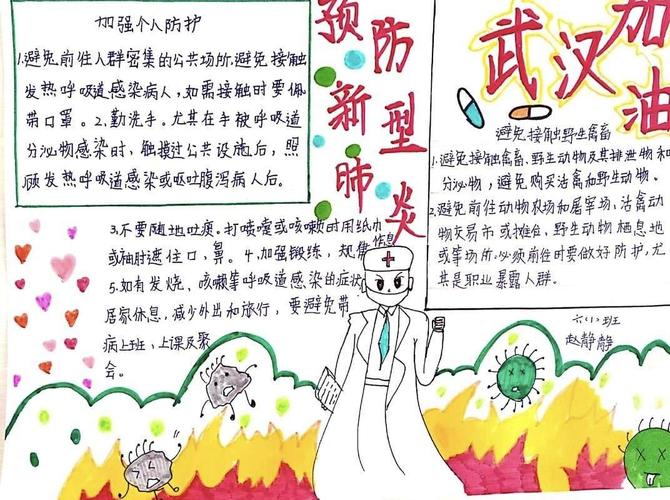 加强个人防护
1.避免前往人群密集的公共场所.避免接触
发热呼吸道感染病人,如需接触时要佩
带口罩。2.勤洗手.尤其在手被呼吸道
分泌物感染时、触摸过公共设施后,照
顾发热呼吸道感染或呕吐腹泻病人后。
3.不要随地吐痰。打喷嚏或咳嗽时用纸巾
或袖肘遮住口、鼻。4.加强锻练,规律作息
5.如有发烧、咳嗽等呼吸道感染的症状
居家休息,减少外出和旅行,要避免带
病上班、上课及聚
会。
预防新型肺炎
武汉加油
避免接触野生禽畜
1.避免接触禽畜、野生动物及其排泄物和
分泌物,避免购买活禽和野生动物。
2.避免前往动物农场和屠宰场、活禽动
物交易市或摊台、野生动物栖息地
或等场所.必须前往时要做好防护,尤
其是职业暴露人群。
六(1)班
赵静静